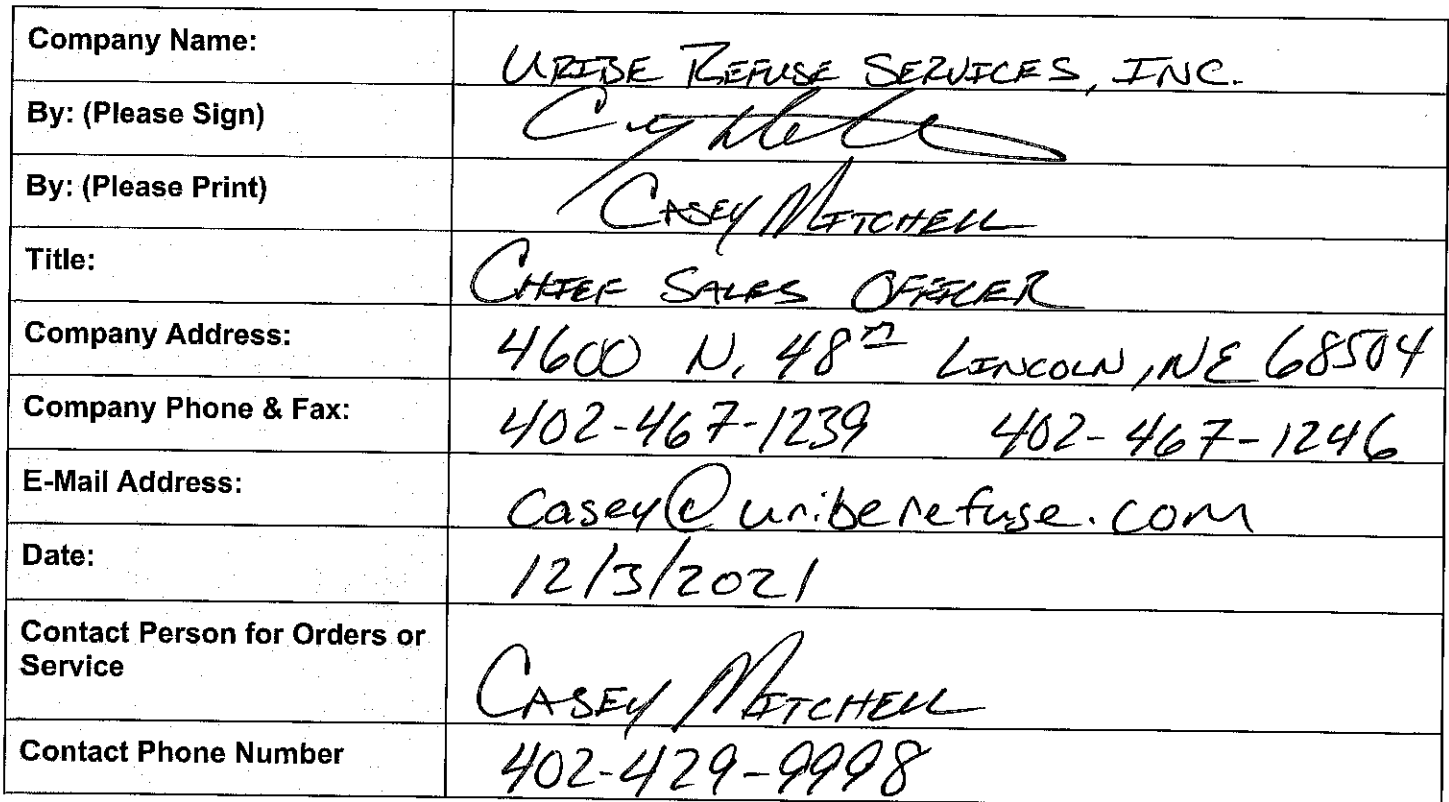 Company Name: URIBE REFUSE SERVICES, INC.
By: (Please Sign)
By: (Please Print) CASEY MITCHELL
Title: CHIEF SALES OFFICER
Company Address: 4600 N. 48th LINCOLN, NE 68504
Company Phone & Fax: 402-467-1239 402-467-1246
E-Mail Address: casey@uriberefuse.com
Date: 12/3/2021
Contact Person for Orders or
Service CASEY MITCHELL
Contact Phone Number 402-429-9998